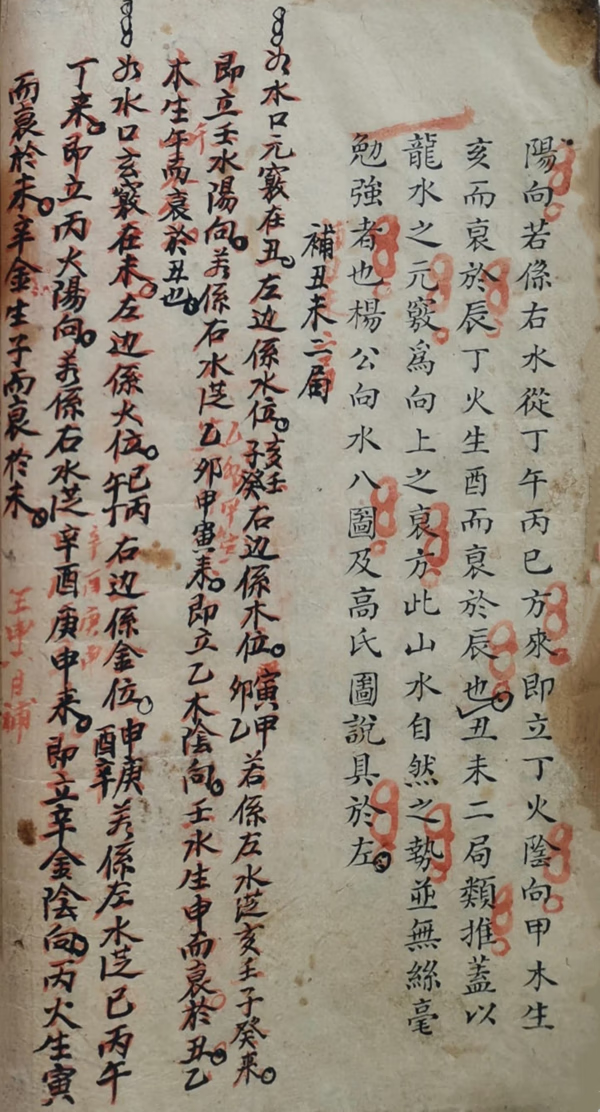 陽向若係右水從丁午丙巳方來即立丁火陰向甲木生
亥而衰於辰丁火生酉而衰於辰也丑未二局類推蓋以
龍水之元竅為向上之衰方此山水自然之勢並無絲毫
勉強者也楊公向水八圖及高氏圖說具於左
補丑未二局
如水口元竅在丑左边係水位亥壬子癸右边係木位寅甲卯乙若係左水從亥壬子癸來
即立壬水陽向若係右水從乙卯甲寅來即立乙木陰向壬水生申而衰於丑乙
木生午而衰於丑也
如水口玄竅在未左边係火位巳丙午丁右边係金位申庚酉辛若係左水從巳丙午
丁來即立丙火陽向若係右水從辛酉庚申來即立辛金陰向丙火生寅
而衰於未辛金生子而衰於未
壬申六月補